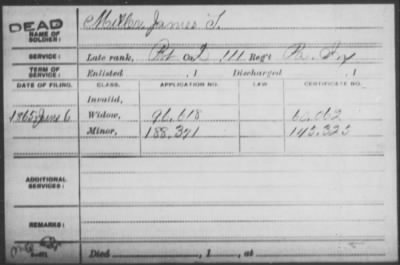 DEAD
NAME OF SOLDIER: Miller, James T.
SERVICE: Late rank, Pvt Co. I, 111 Reg't Pa. Inf
TERM OF SERVICE: Enlisted , 1 Discharged , 1
DATE OF FILING. CLASS. APPLICATION NO. LAW CERTIFICATE NO.
Invalid,
1865 June 6 Widow, 96.618 60.062
Minor, 188.391 145.323
ADDITIONAL SERVICES:
REMARKS:
Died , 1 , at